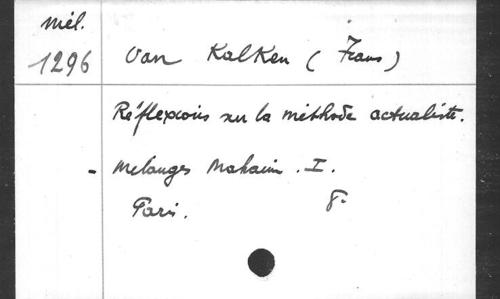 Mél.
1296
Van Kalken (Frans)
Réflexions sur la méthode actualiste.
- Mélanges Mahaim. I.
Paris. 8°